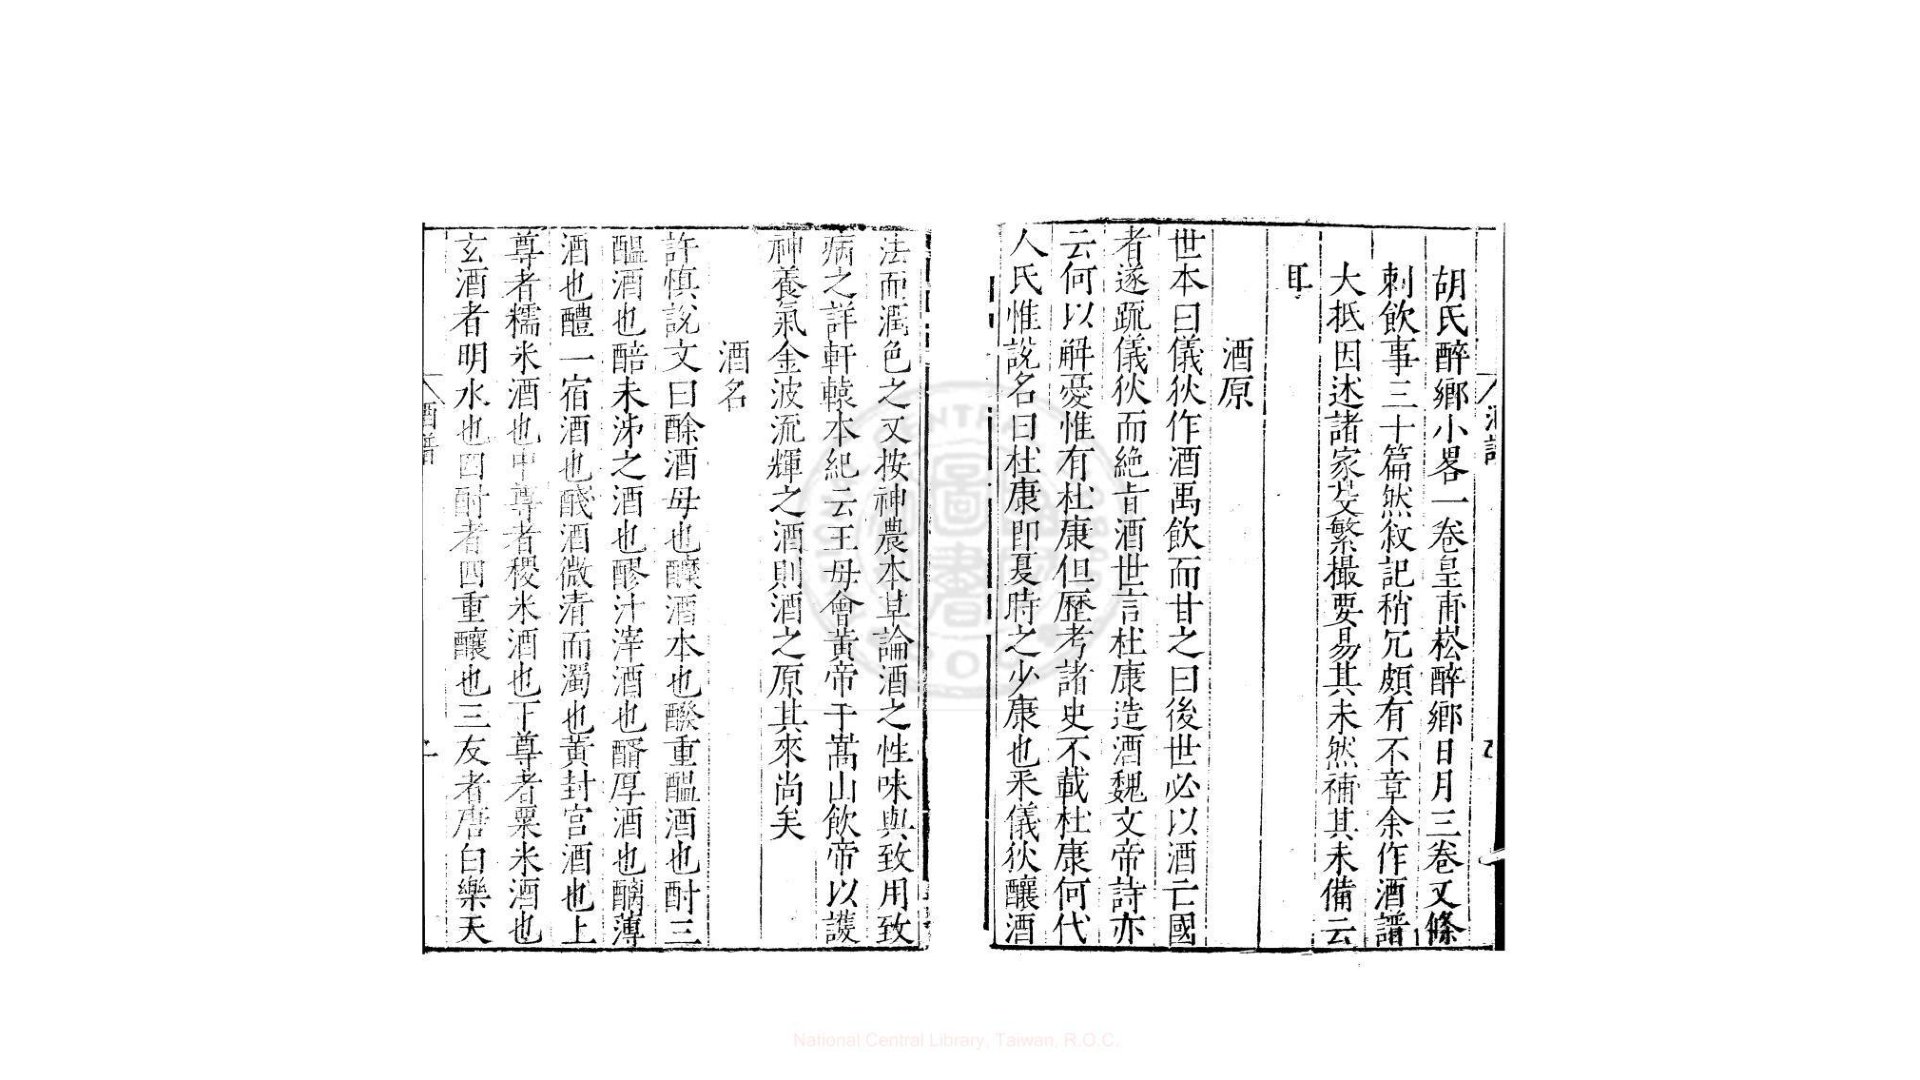 胡氏醉鄉小畧一卷皇甫崧醉鄉日月三卷又條
刺飲事三十篇然叙記稍冗頗有不章余作酒譜
大抵因述諸家芟繁撮要易其未然補其未備云
耳
酒原
世本曰儀狄作酒禹飲而甘之曰後世必以酒亡國
者遂疏儀狄而絶旨酒世言杜康造酒魏文帝詩亦
云何以解憂惟有杜康但歷考諸史不載杜康何代
人氏惟說名曰杜康即夏時之少康也釆儀狄釀酒
法而潤色之又按神農本草論酒之性味與致用致
病之詳軒轅本紀云王母會黃帝于嵩山飲帝以護
神養氣金波流輝之酒則酒之原其來尚矣
酒名
許慎說文曰酴酒母也釀酒本也醱重醖酒也酎三
醖酒也醅未泲之酒也醪汁滓酒也醑厚酒也醨薄
酒也醴一宿酒也醆酒微清而濁也黃封宮酒也上
尊者糯米酒也中尊者稷米酒也下尊者粟米酒也
玄酒者明水也四酎者四重釀也三友者唐白樂天
酒譜
National Central Library, Taiwan, R.O.C.